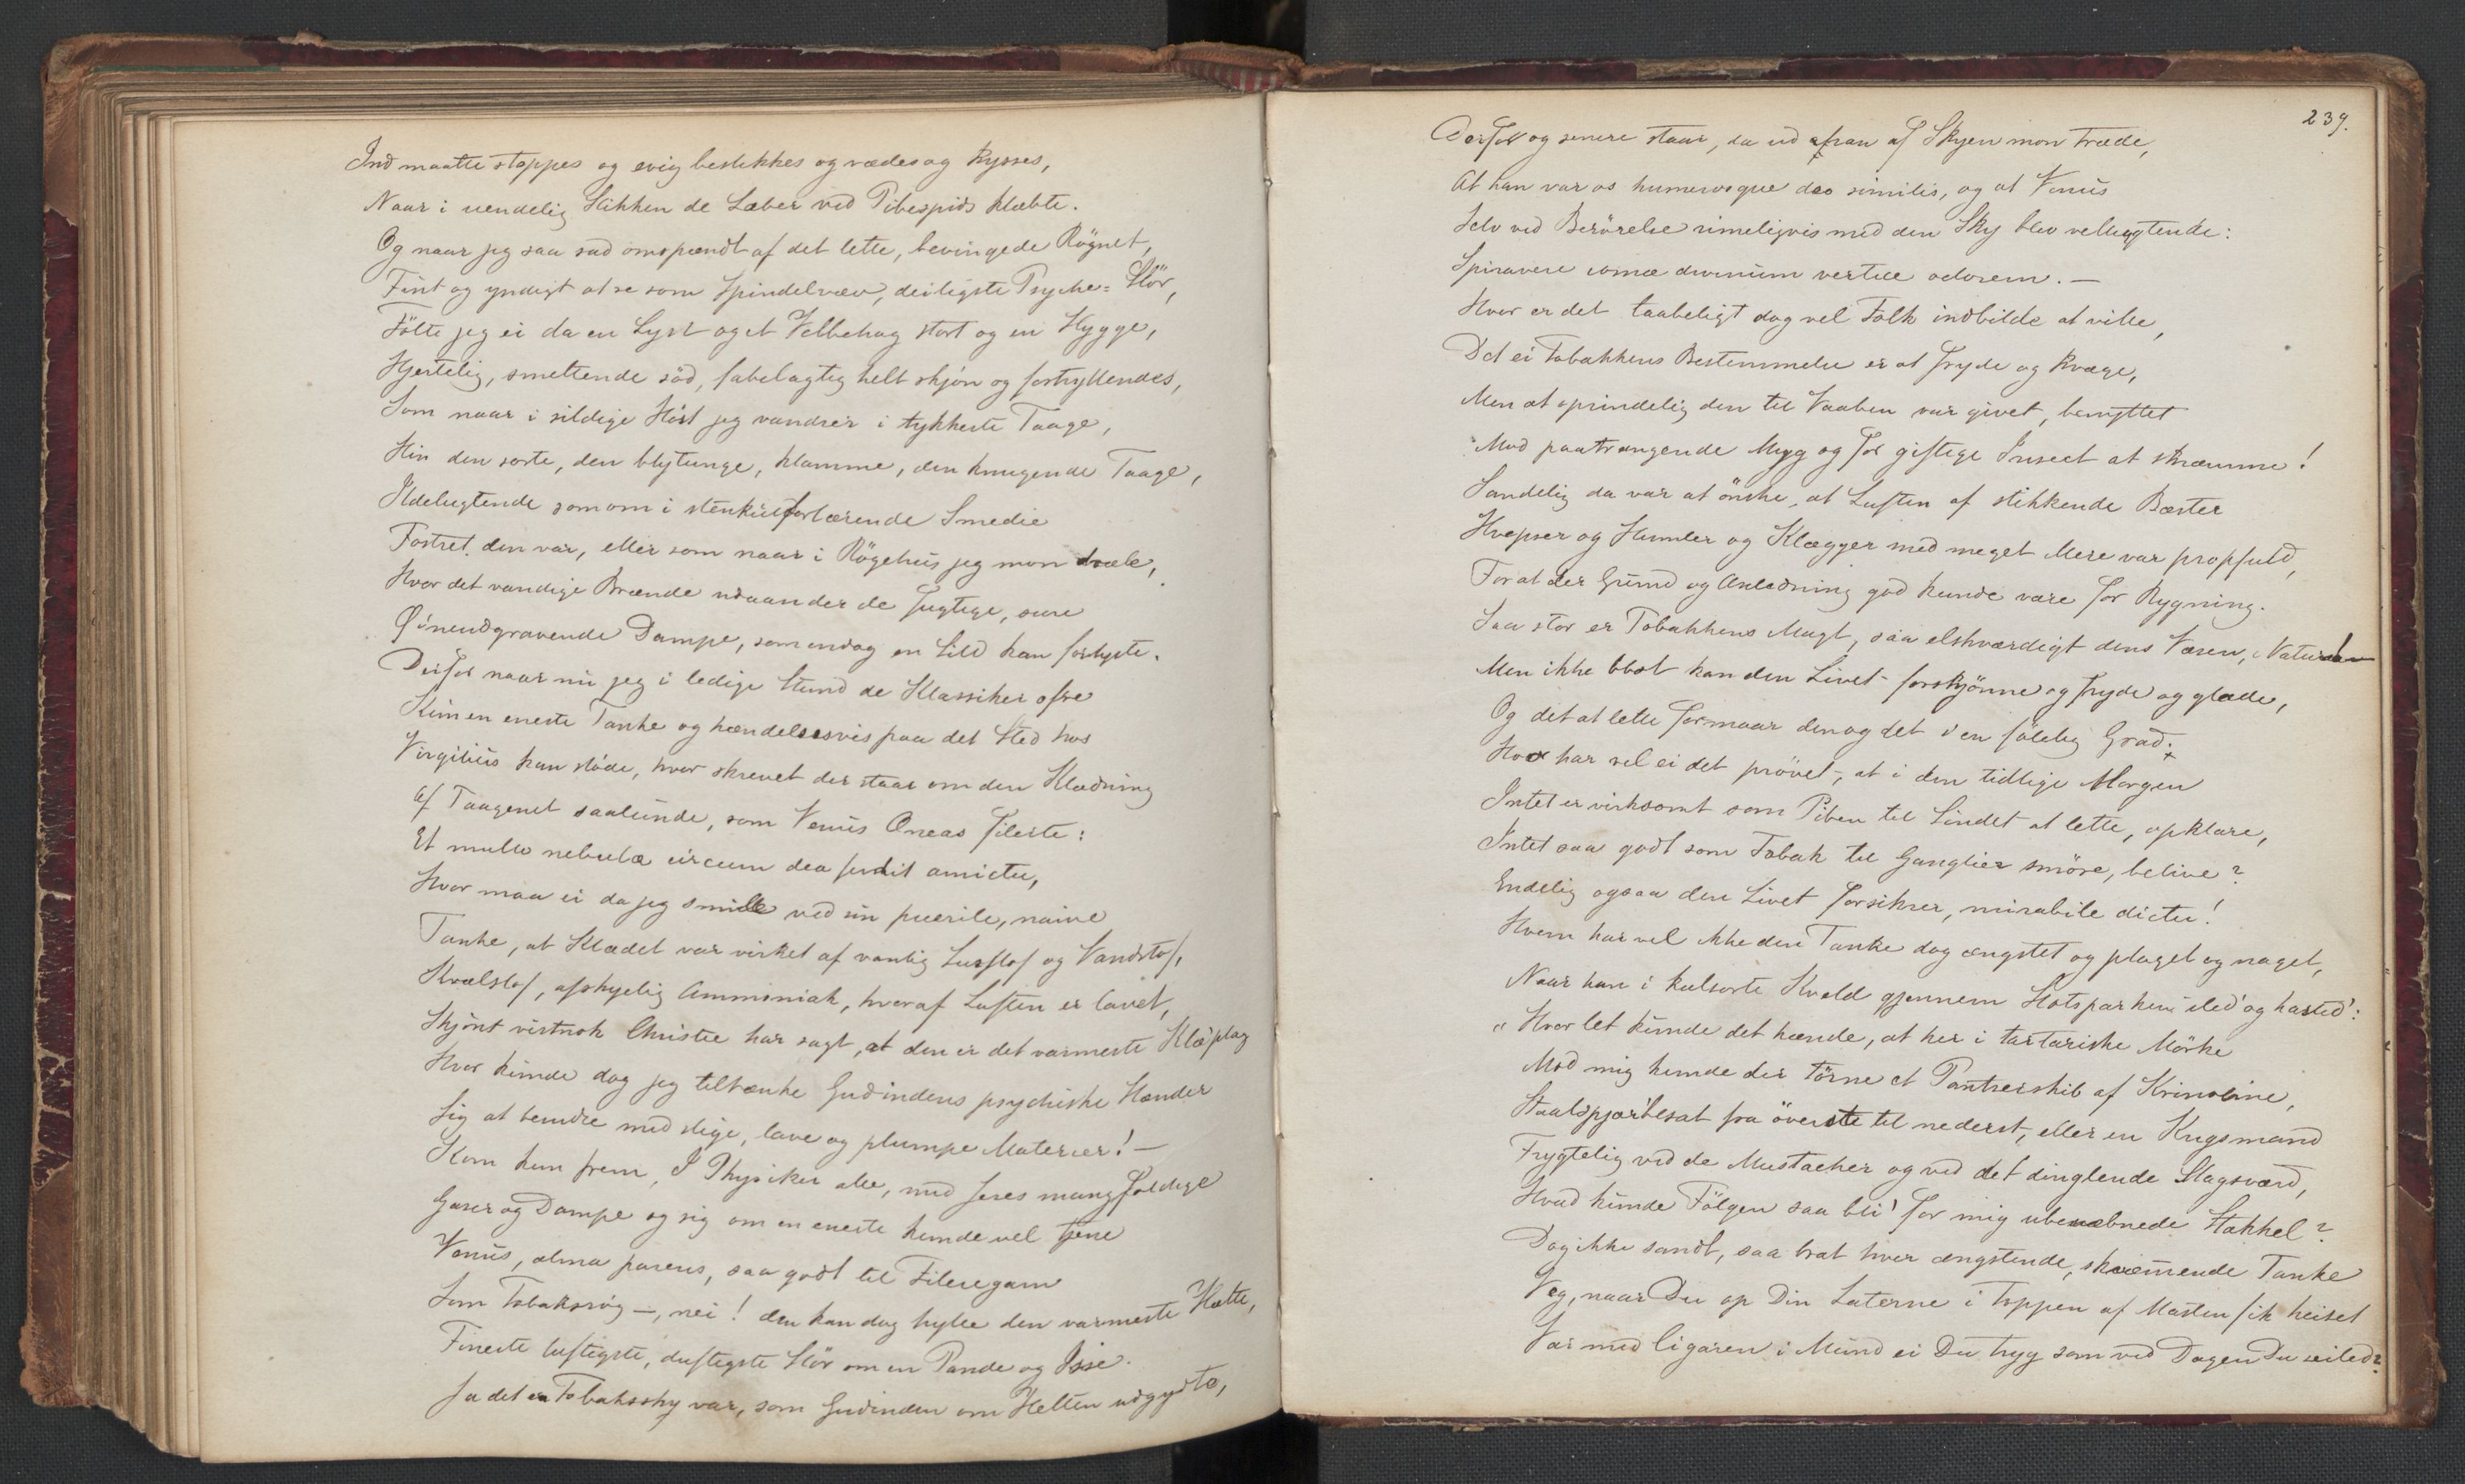 Ind maatte stoppes og evig bestikkes og vædes og kysses,
Naar i uendelig Stikken de Læber ved Pibespids klæbte.
Og naar jeg saa sad omspændt af det lette, bevingede Rögnet,
Fint og yndigt at se som Spindelvæv, deiligste Psyche-Slör,
Fölte jeg ei da en Lyst og et Velbehag stort og en Hygge,
Hjertelig, smeltende söd, fabelagtig helt skjön og fortryllendes,
Som naar i sildige Höst jeg vandrer i tykkeste Taage,
Hin den sorte, den blytunge, klamme, den knugende Taage,
Ildelugtende som om i stenkulfortærende Smedie
Fostret den var, eller som naar i Rögehus jeg mon dvæle,
Hvor det vandige Brænde udaander de fugtige, sure
Öinendgravende Dampe, som endog en Sild kan forlyste.
Derfor naar nu jeg i ledige Stund de Klassiker ofre
Kun en eneste Tanke og hændelsesvis paa det Sted hos
Virgilius kan stöde, hvor skrevet der staar om den Klædning
Af Taagenet saalunde, som Venus Æneas fileste:
Et multo nebulæ circum dea fudit amictu,
Hvor maa ei da jeg smile ved en puerile, naive
Tanke, at Klædet var virket af vanlig Surstof og Vandstof,
Kvælstof, afskyelig Ammoniak, hvoraf Luften er lavet,
Skjönt vistnok Christie har sagt, at den er det varmeste Klæplag
Hvor kunde dog jeg tiltænke Gudindens psychiske Hænder
Sig at semdre med slige, lave og plumpe Materier! —
Kom kun frem, I Physiker alle, med Jeres mangfoldige
Gaser og Dampe og sig om en eneste kunde vel tjene
Venus, alma parens, saa godt til Fileregarn
Som Tobaksrög —, nei! den kan dog hylle den varmeste Hætte,
Fineste luftigste, duftigste Slör om en Pande og Isse.
Ja det en Tobakssky var, som Gudinden om Helten udgydte,
239.
Derfor og senere staar, da ud af Skyen mon træde,
At han var os humerosque deo similis, og at Venus
Selv ved Berörelse rimeligvis med den Sky blev vellugtende:
Spiravere comæ divinum vertice odorem. —
Hvor er det taabeligt dog vel Folk indbilde at ville,
Det ei Tobakkens Bestemmelse er at fryde og kvæge,
Men at oprindelig den til Vaaben var givet, benyttet
Mod paatrængende Myg og for giftige Insect at skræmme!
Sandelig da var at önske, at Luften af stikkende Bæster
Hvepser og Humler og Klægger med meget Mere var propfuld,
For at der Grund og Anledning god kunde være for Rygning.
Saa stor er Tobakkens Magt, saa elskværdigt dens Væsen, Naturen
Men ikke blot kan den Livet forskjönne og fryde og glæde,
Og det at lette formaar den og det i en fölelig Grad:
Hvo har vel ei det prövet, at i den tidlige Morgen
Intet er virksomt som Piben til Sindet at lette, opklare,
Intet saa godt som Tobak til Ganglier smöre, belive?
Endelig ogsaa den Livet forsikrer, mirabile dictu!
Hvem har vel ikke den Tanke dog ængstet og plaget og naget,
Naar han i kulsorte Kveld gjennem Slotsparken iled' og hasted':
"Hvor let kunde det hænde, at her i tartariske Mörke
Mod mig kunde der törne et Pantserskib af Krinoline,
Staalspjærbesat fra överste til nederst, eller en Krigsmand
Frygtelig ved de Mustacher og ved det dinglende Slagsværd,
Hvad kunde Fölgen saa bli' for mig ubevæbnede Stakkel?
Dog ikke sandt, saa brat hver ængstende, skræmende Tanke
Veg, naar Du op Din Laterne i Toppen af Masten fik heiset
Var med Cigaren i Mund ei Du tryg som ved Dagen Du seiled?